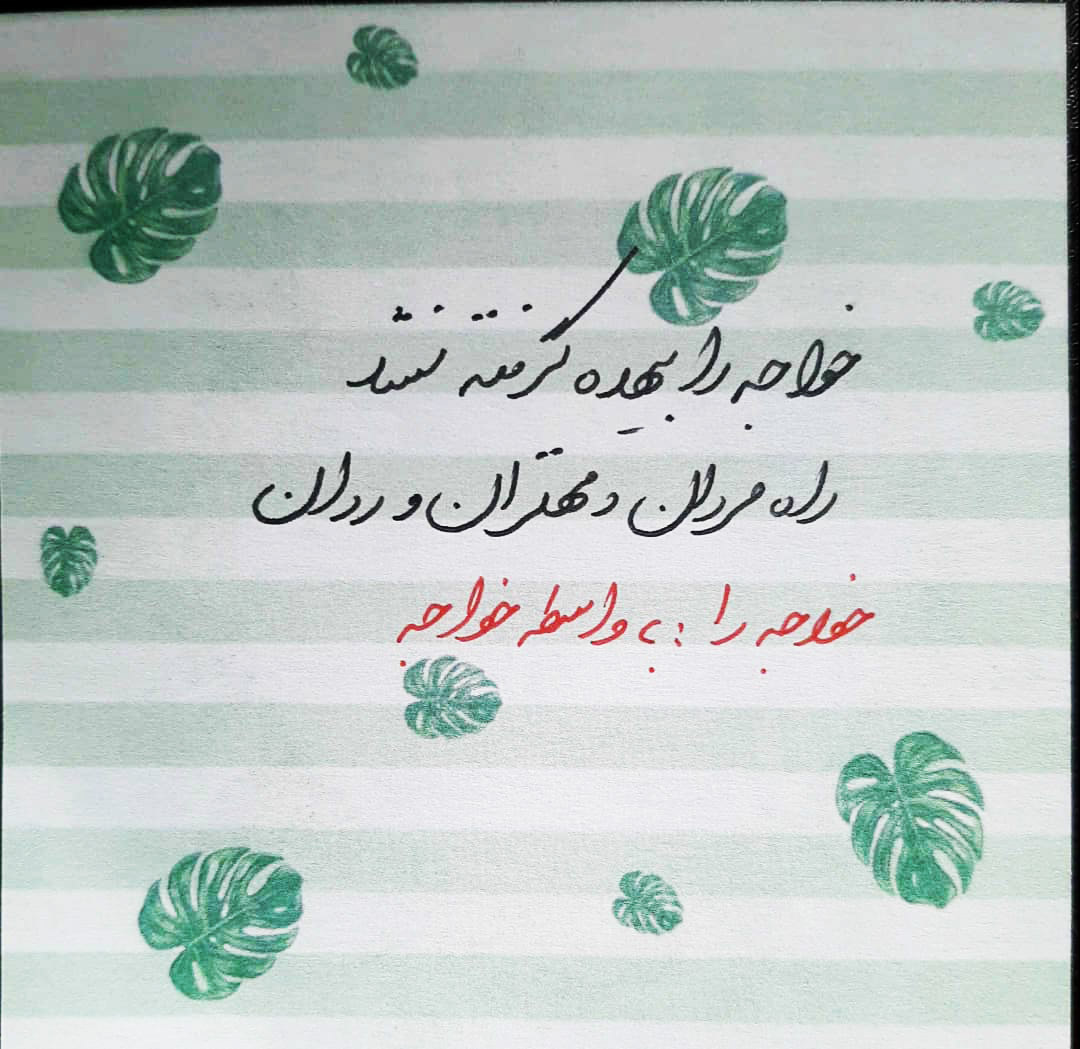 خواجه را بیهده گرفته نشد
راه مردان و مهتران و ردان
خواجه را : به واسطه خواجه